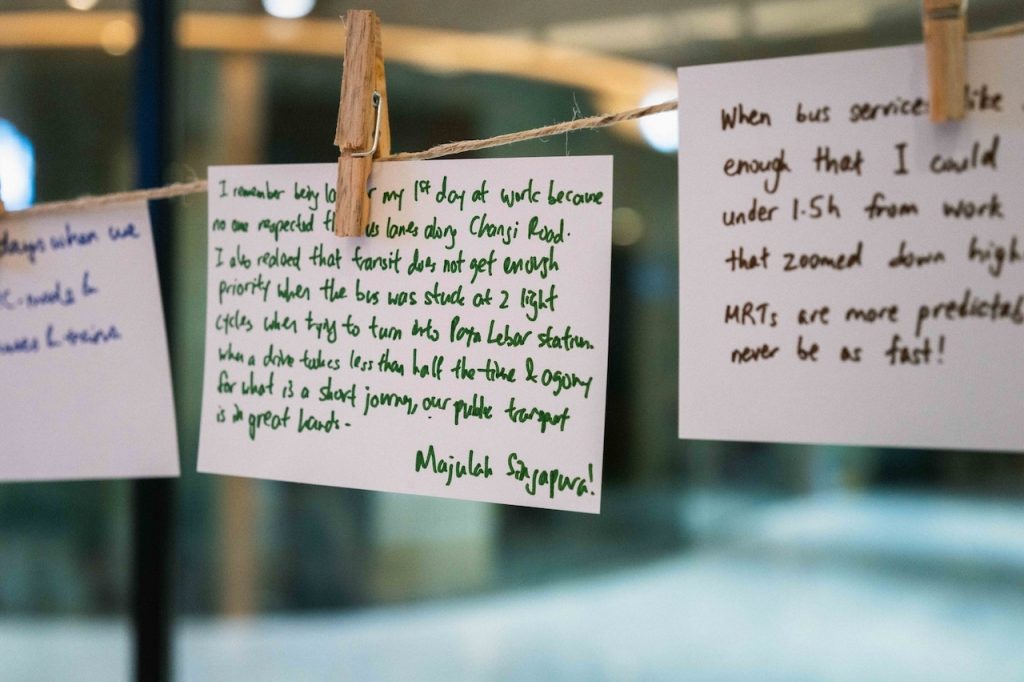 days when we
& trains
I remember being my 1st day at work because
no one respected lanes along Changi Road.
I also realised that transit does not get enough
priority when the bus was stuck at 2 light
cycles when trying to turn into Paya Lebar station.
when a drive takes less than half the time & agony
for what is a short journey, our public transport
is in great hands.
Majulah Singapura!
When bus services like
enough that I could
under 1.5h from work
that zoomed down high
MRTs are more predictab
never be as fast!